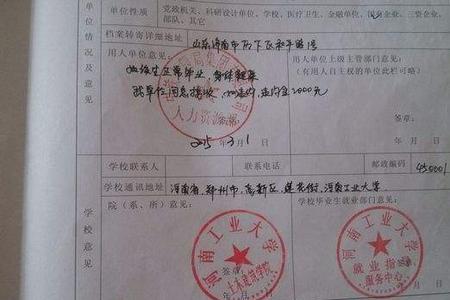 单位性质 党政机关、科研设计单位、学校、医疗卫生、金融单位、国有企业、三资企业、
部队、其它
档案转寄详细地址 山东济南市历下区和平路1号
用人单位意见:
用人单位上级主管部门意见:
(有用人自主权的单位此栏可略)
如该生正常毕业,身体健康
我单位同意接收
2000元
人力资源部
2015年3月1日
签章
年 月
学校联系人 联系电话 邮政编码 450001
学校通讯地址 河南省,郑州市,高新区,莲花街,河南工业大学
单位情况及意见
学校意见
院(系、所)意见
学校毕业生就业部门意见:
河南工业大学
土木建筑学院
河南工业大学
就业指导
服务中心